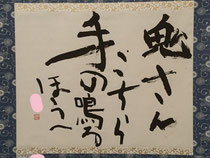 鬼さん
こちら
手の鳴る
ほうへ